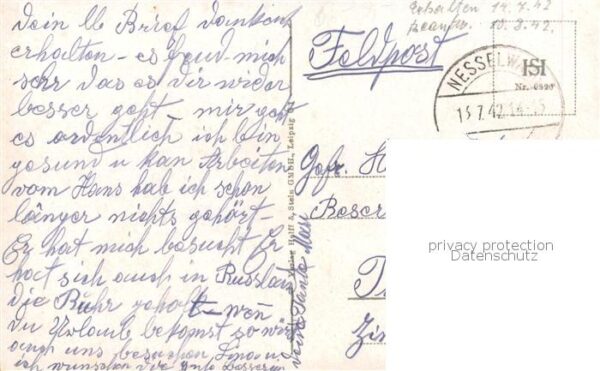 Dein lb Brief dankend
erhalten - es freud mich
sehr das es dir wieder
besser geht mir geht
es ordentlich ich bin
gesund u kan Arbeiten
vom Hans hab ich schon
länger nichts gehört -
Er hat mich besucht Er
hat sich auch in Russland
die Ruhr geholt - wen
du Urlaub bekomst so wirst
auch uns besuchen
ich wünschen dir gute Besserung
deine Tante Mari
Erhalten 14.7.42
Beantw. 10.8.42.
Feldpost
NESSELW
13.7.42
HSI
Nr.
Verlag Stein GMBH, Leipzig
Gefr.
Reser
Zim
privacy protection
Datenschutz